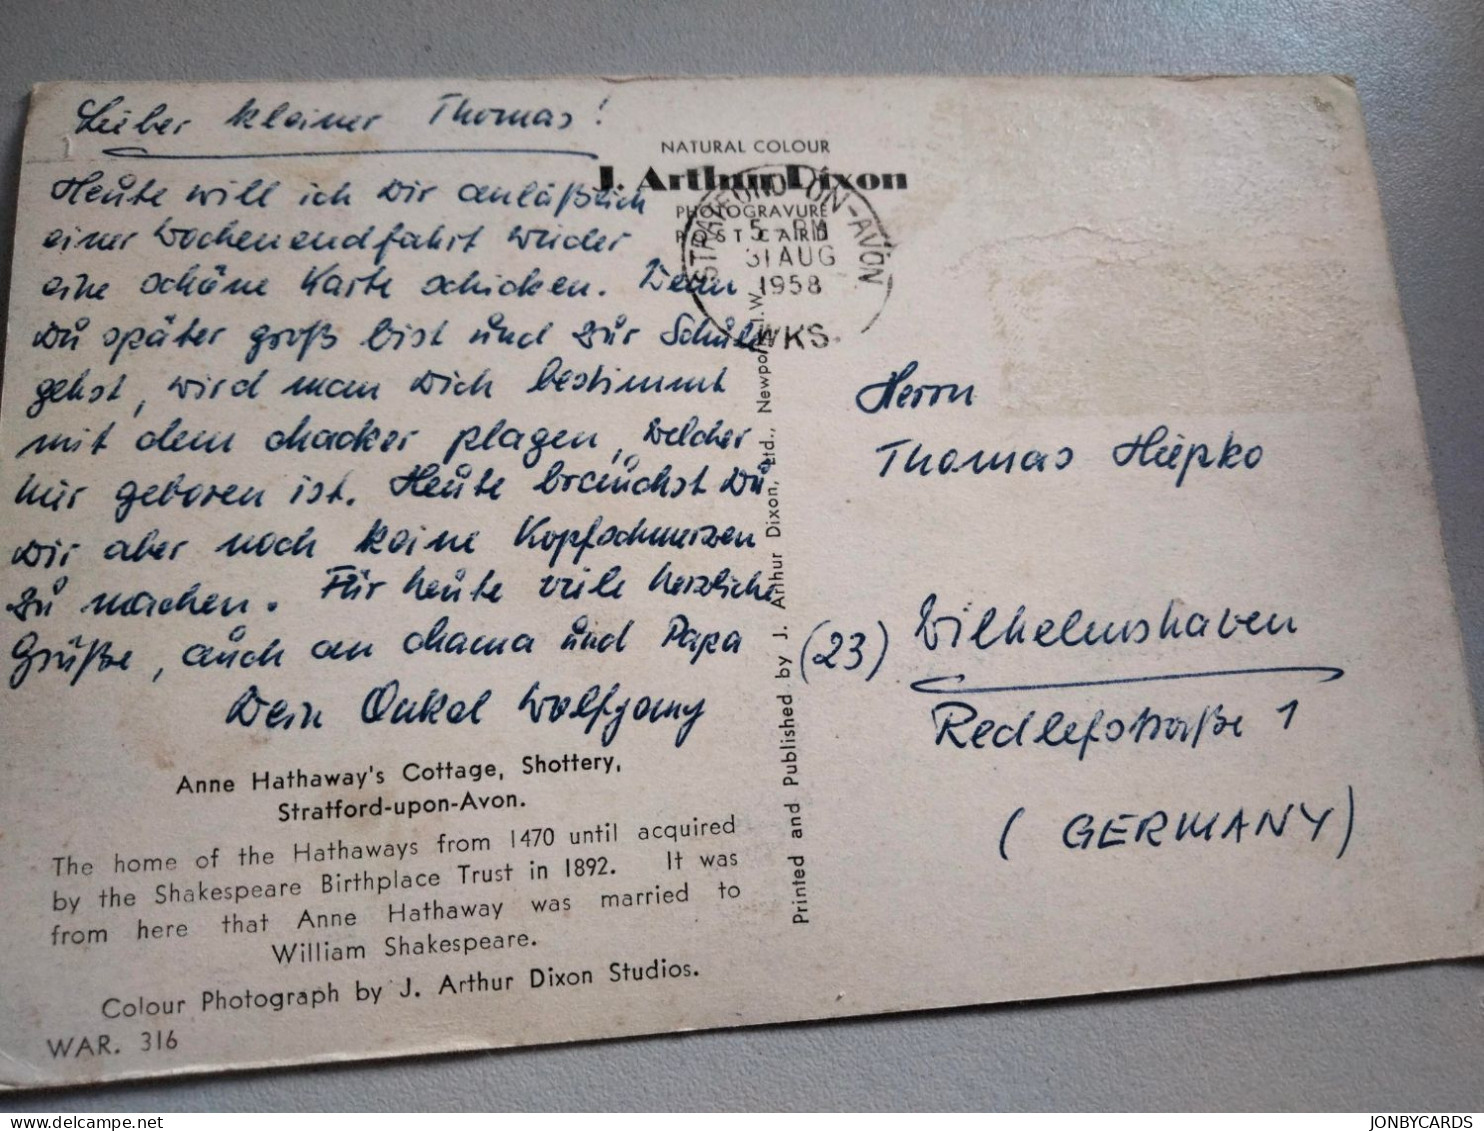 Lieber kleiner Thomas!
Heute will ich Dir anläßlich
einer Wochenendfahrt wieder
eine schöne Karte schicken. Wenn
Du später groß bist und zur Schule
gehst, wird man Dich bestimmt
mit dem Macker plagen, welcher
hier geboren ist. Heute brauchst Du
Dir aber noch keine Kopfschmerzen
zu machen. Für heute viele herzliche
Grüße, auch an Mama und Papa
Dein Onkel Wolfgang
Anne Hathaway's Cottage, Shottery,
Stratford-upon-Avon.
The home of the Hathaways from 1470 until acquired
by the Shakespeare Birthplace Trust in 1892. It was
from here that Anne Hathaway was married to
William Shakespeare.
Colour Photograph by J. Arthur Dixon Studios.
WAR. 316
NATURAL COLOUR
J. Arthur Dixon
PHOTOGRAVURE
POST CARD
STRATFORD-ON-AVON
5 PM
31 AUG
1958
WKS
Printed and Published by J. Arthur Dixon, Ltd., Newport, I.W.
Herrn
Thomas
(23) Wilhelmshaven
Redlefstraße 1
(GERMANY)
delcampe.net
JONBYCARDS